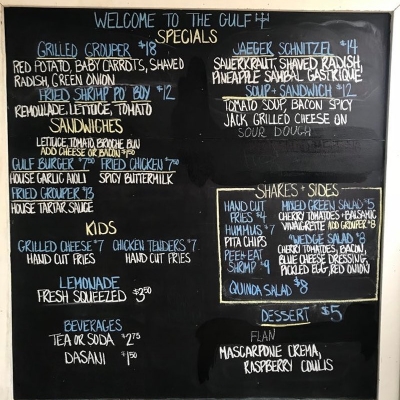 WELCOME TO THE GULF
SPECIALS
GRILLED GROUPER $18
RED POTATO, BABY CARROTS, SHAVED
RADISH, GREEN ONION
FRIED SHRIMP PO' BOY $12
REMOULADE, LETTUCE, TOMATO
JAEGER SCHNITZEL $14
SAUERKRAUT, SHAVED RADISH,
PINEAPPLE SAMBAL GASTRIQUE
SOUP + SANDWICH $12
TOMATO SOUP, BACON SPICY
JACK GRILLED CHEESE ON
SOUR DOUGH
SANDWICHES
LETTUCE, TOMATO, BRIOCHE BUN
ADD CHEESE OR BACON $1.50
GULF BURGER $7.50 FRIED CHICKEN $7.50
HOUSE GARLIC AIOLI SPICY BUTTERMILK
FRIED GROUPER $13
HOUSE TARTAR SAUCE
KIDS
GRILLED CHEESE $7 CHICKEN TENDERS $7
HAND CUT FRIES HAND CUT FRIES
LEMONADE
FRESH SQUEEZED $3.50
BEVERAGES
TEA OR SODA $2.75
DASANI $1.50
SHARES + SIDES
HAND CUT
FRIES $4
HUMMUS $7
PITA CHIPS
PEEL+EAT
SHRIMP $9
QUINOA SALAD $8
MIXED GREEN SALAD $5
CHERRY TOMATOES + BALSAMIC
VINAIGRETTE ADD GROUPER $8
WEDGE SALAD $8
CHERRY TOMATOES, BACON,
BLUE CHEESE DRESSING,
PICKLED EGG, RED ONION
DESSERT $5
FLAN
MASCARPONE CREMA,
RASPBERRY COULIS